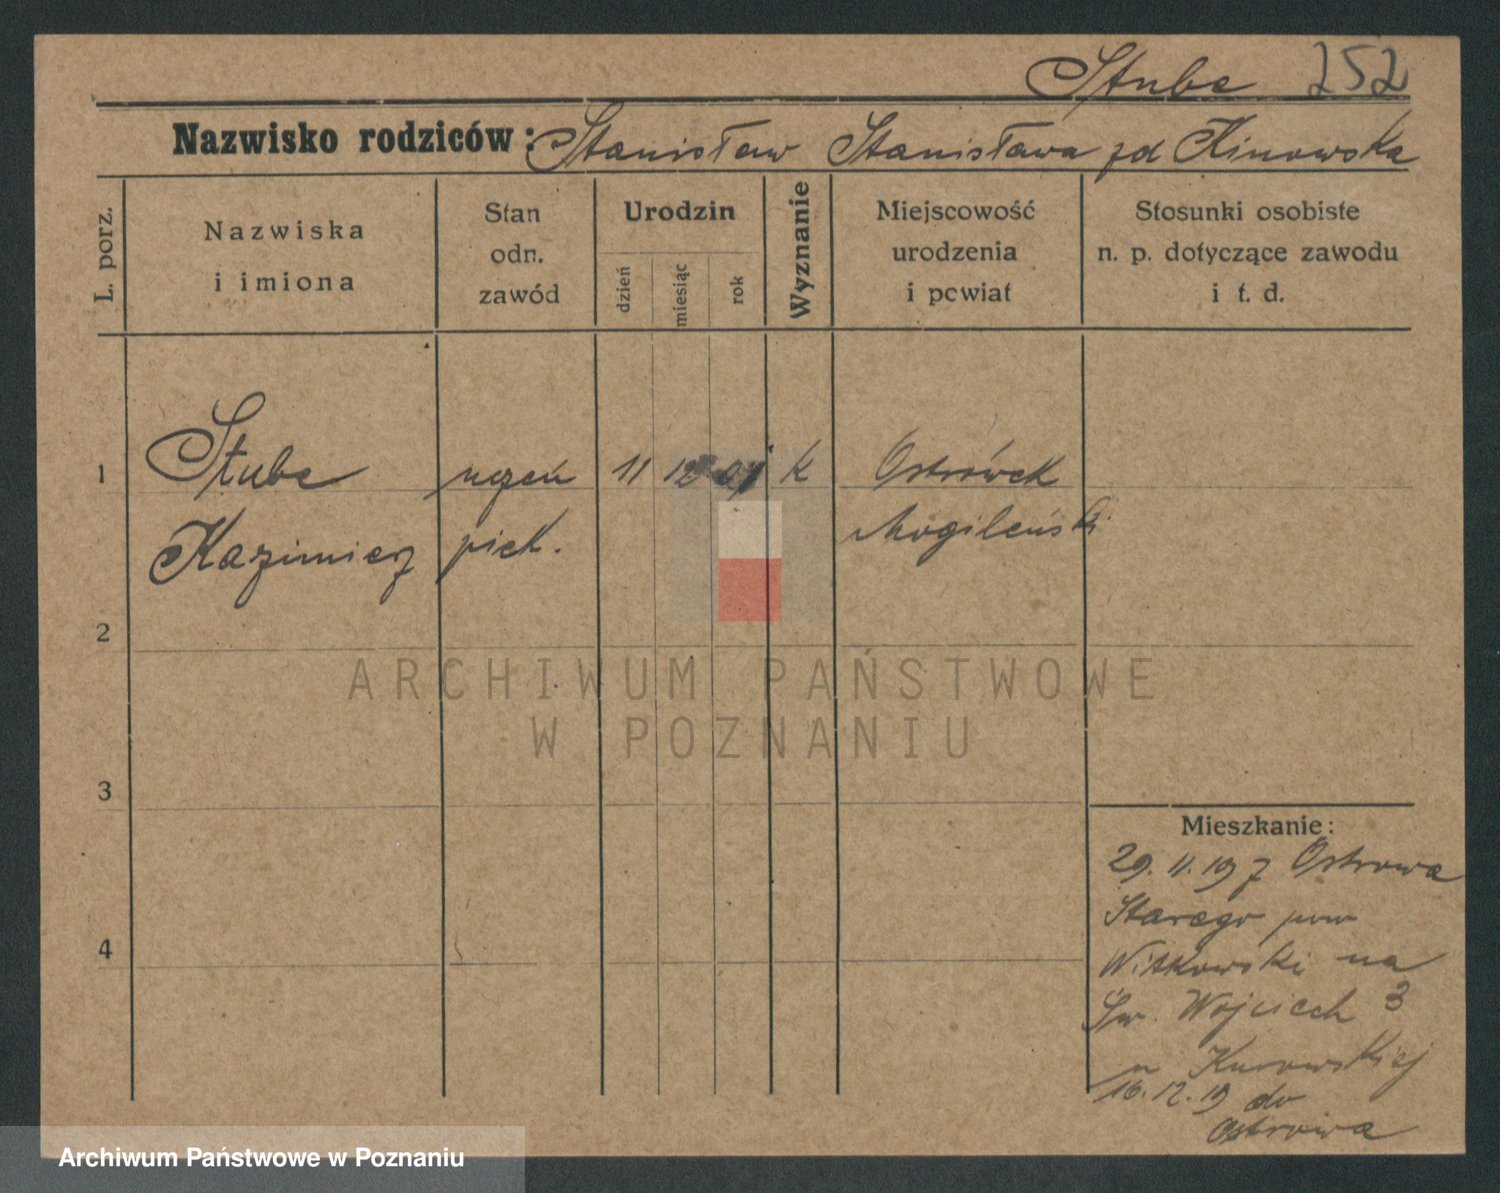 Stube 252
Nazwisko rodziców: Stanisław Stanisława zd Kinowska
L. porz.
Nazwiska
i imiona
Stan
odn.
zawód
Urodzin
dzień
miesiąc
rok
Wyznanie
Miejscowość
urodzenia
i powiat
Stosunki osobiste
n. p. dotyczące zawodu
i t. d.
1
Stube uczeń 11 12 k Ostrówek
Kazimierz piek. Mogileński
2
ARCHIWUM PAŃSTWOWE
W POZNANIU
3
Mieszkanie:
29.11.19 z Ostrowa
Starego pow
Witkowski na
Św. Wojciech 3
u Kurowskiej
4
16.12.19 do
Ostrowa
Archiwum Państwowe w Poznaniu